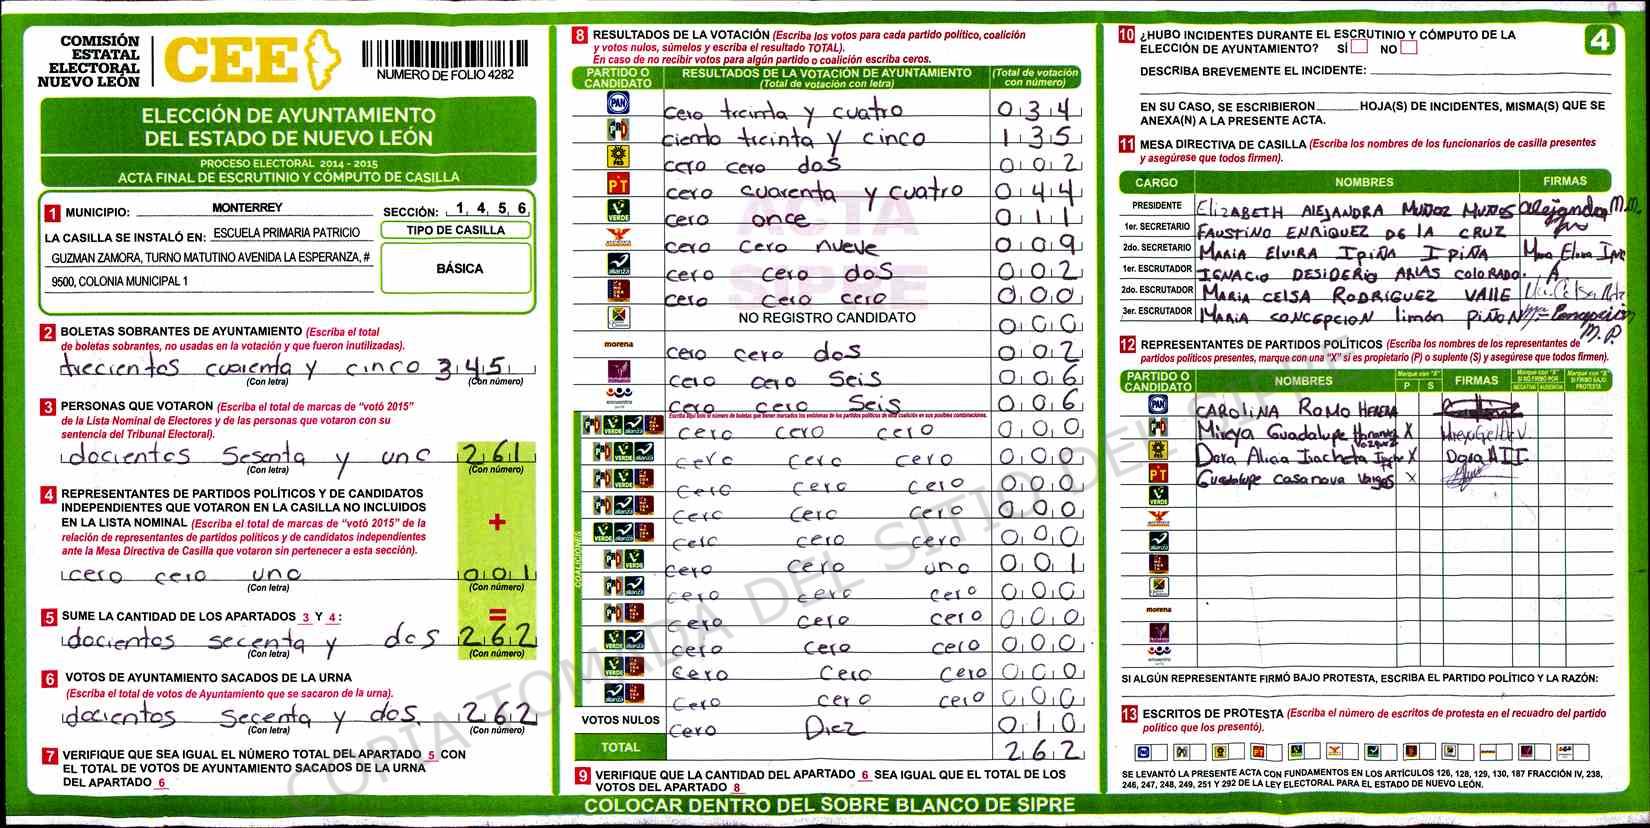 COMISIÓN
ESTATAL
ELECTORAL
NUEVO LEÓN
CEE
NUMERO DE FOLIO 4282
ELECCIÓN DE AYUNTAMIENTO
DEL ESTADO DE NUEVO LEÓN
PROCESO ELECTORAL 2014 - 2015
ACTA FINAL DE ESCRUTINIO Y CÓMPUTO DE CASILLA
1 MUNICIPIO: MONTERREY SECCIÓN: 1 4 5 6
LA CASILLA SE INSTALÓ EN: ESCUELA PRIMARIA PATRICIO
GUZMAN ZAMORA, TURNO MATUTINO AVENIDA LA ESPERANZA, #
9500, COLONIA MUNICIPAL 1
TIPO DE CASILLA
BÁSICA
2 BOLETAS SOBRANTES DE AYUNTAMIENTO (Escriba el total
de boletas sobrantes, no usadas en la votación y que fueron inutilizadas).
trecientos cuarenta y cinco 3 4 5
(Con letra) (Con número)
3 PERSONAS QUE VOTARON (Escriba el total de marcas de “votó 2015”
de la Lista Nominal de Electores y de las personas que votaron con su
sentencia del Tribunal Electoral).
docientos sesenta y uno 2 6 1
(Con letra) (Con número)
4 REPRESENTANTES DE PARTIDOS POLÍTICOS Y DE CANDIDATOS
INDEPENDIENTES QUE VOTARON EN LA CASILLA NO INCLUIDOS
EN LA LISTA NOMINAL (Escriba el total de marcas de “votó 2015” de la
relación de representantes de partidos políticos y de candidatos independientes
ante la Mesa Directiva de Casilla que votaron sin pertenecer a esta sección).
+
cero cero uno 0 0 1
(Con letra) (Con número)
5 SUME LA CANTIDAD DE LOS APARTADOS 3 Y 4: =
docientos secenta y dos 2 6 2
(Con letra) (Con número)
6 VOTOS DE AYUNTAMIENTO SACADOS DE LA URNA
(Escriba el total de votos de Ayuntamiento que se sacaron de la urna).
docientos secenta y dos. 2 6 2
(Con letra) (Con número)
7 VERIFIQUE QUE SEA IGUAL EL NÚMERO TOTAL DEL APARTADO 5 CON
EL TOTAL DE VOTOS DE AYUNTAMIENTO SACADOS DE LA URNA
DEL APARTADO 6
8 RESULTADOS DE LA VOTACIÓN (Escriba los votos para cada partido político, coalición
y votos nulos, súmelos y escriba el resultado TOTAL).
En caso de no recibir votos para algún partido o coalición escriba ceros.
PARTIDO O CANDIDATO RESULTADOS DE LA VOTACIÓN DE AYUNTAMIENTO (Total de votación con letra) (Total de votación con número)
PAN cero treinta y cuatro 0 3 4
PRI ciento treinta y cinco 1 3 5
PRD cero cero dos 0 0 2
PT cero cuarenta y cuatro 0 4 4
VERDE cero once 0 1 1
cero cero nueve 0 0 9
alianza cero cero dos 0 0 2
cero cero cero 0 0 0
NO REGISTRO CANDIDATO 0 0 0
morena cero cero dos 0 0 2
cero cero seis 0 0 6
encuentro cero cero seis 0 0 6
Escriba aquí solo el número de boletas que tienen marcados los emblemas de los partidos políticos de esta coalición en sus posibles combinaciones.
COALICIONES
cero cero cero 0 0 0
cero cero cero 0 0 0
cero cero cero 0 0 0
cero cero cero 0 0 0
cero cero cero 0 0 0
cero cero uno 0 0 1
cero cero cero 0 0 0
cero cero cero 0 0 0
cero cero cero 0 0 0
cero cero cero 0 0 0
cero cero cero 0 0 0
VOTOS NULOS cero Diez 0 1 0
TOTAL 2 6 2
9 VERIFIQUE QUE LA CANTIDAD DEL APARTADO 6 SEA IGUAL QUE EL TOTAL DE LOS
VOTOS DEL APARTADO 8
ACTA
SIPRE
COPIA TOMADA DEL SITIO DEL SIPRE
10 ¿HUBO INCIDENTES DURANTE EL ESCRUTINIO Y CÓMPUTO DE LA
ELECCIÓN DE AYUNTAMIENTO? SÍ NO
4
DESCRIBA BREVEMENTE EL INCIDENTE:
EN SU CASO, SE ESCRIBIERON HOJA(S) DE INCIDENTES, MISMA(S) QUE SE
ANEXA(N) A LA PRESENTE ACTA.
11 MESA DIRECTIVA DE CASILLA (Escriba los nombres de los funcionarios de casilla presentes
y asegúrese que todos firmen).
CARGO NOMBRES FIRMAS
PRESIDENTE ElizABETH ALEJANDRA MUÑOZ MUÑOS Alejandra M.M.
1er. SECRETARIO FAUSTINO ENRIQUEZ DE LA CRUZ
2do. SECRETARIO MARIA ELVIRA IPIÑA IPIÑA Ma Elvira
1er. ESCRUTADOR IGNACIO DESIDERIO ARIAS COLORADO.
2do. ESCRUTADOR MARIA CELSA RODRIGUEZ VALLE
3er. ESCRUTADOR MARIA CONCEPCION limón PIÑON Ma Concepcion
M.P.
12 REPRESENTANTES DE PARTIDOS POLÍTICOS (Escriba los nombres de los representantes de
partidos políticos presentes, marque con una “X” si es propietario (P) o suplente (S) y asegúrese que todos firmen).
PARTIDO O CANDIDATO NOMBRES Marque con “X” P S FIRMAS Marque con “X” SI NO FIRMÓ POR NEGATIVA AUSENCIA Marque con “X” SI FIRMÓ BAJO PROTESTA
PAN CAROLINA ROMO HERERA
PRI Mireya Guadalupe X
PRD Dora Alicia Iracheta X Dora A I I
PT Guadalupe Casanova Vargas X
VERDE
alianza
morena
encuentro
SI ALGÚN REPRESENTANTE FIRMÓ BAJO PROTESTA, ESCRIBA EL PARTIDO POLÍTICO Y LA RAZÓN:
13 ESCRITOS DE PROTESTA (Escriba el número de escritos de protesta en el recuadro del partido
político que los presentó).
SE LEVANTÓ LA PRESENTE ACTA CON FUNDAMENTOS EN LOS ARTÍCULOS 126, 128, 129, 130, 187 FRACCIÓN IV, 238,
246, 247, 248, 249, 251 Y 292 DE LA LEY ELECTORAL PARA EL ESTADO DE NUEVO LEÓN.
COLOCAR DENTRO DEL SOBRE BLANCO DE SIPRE